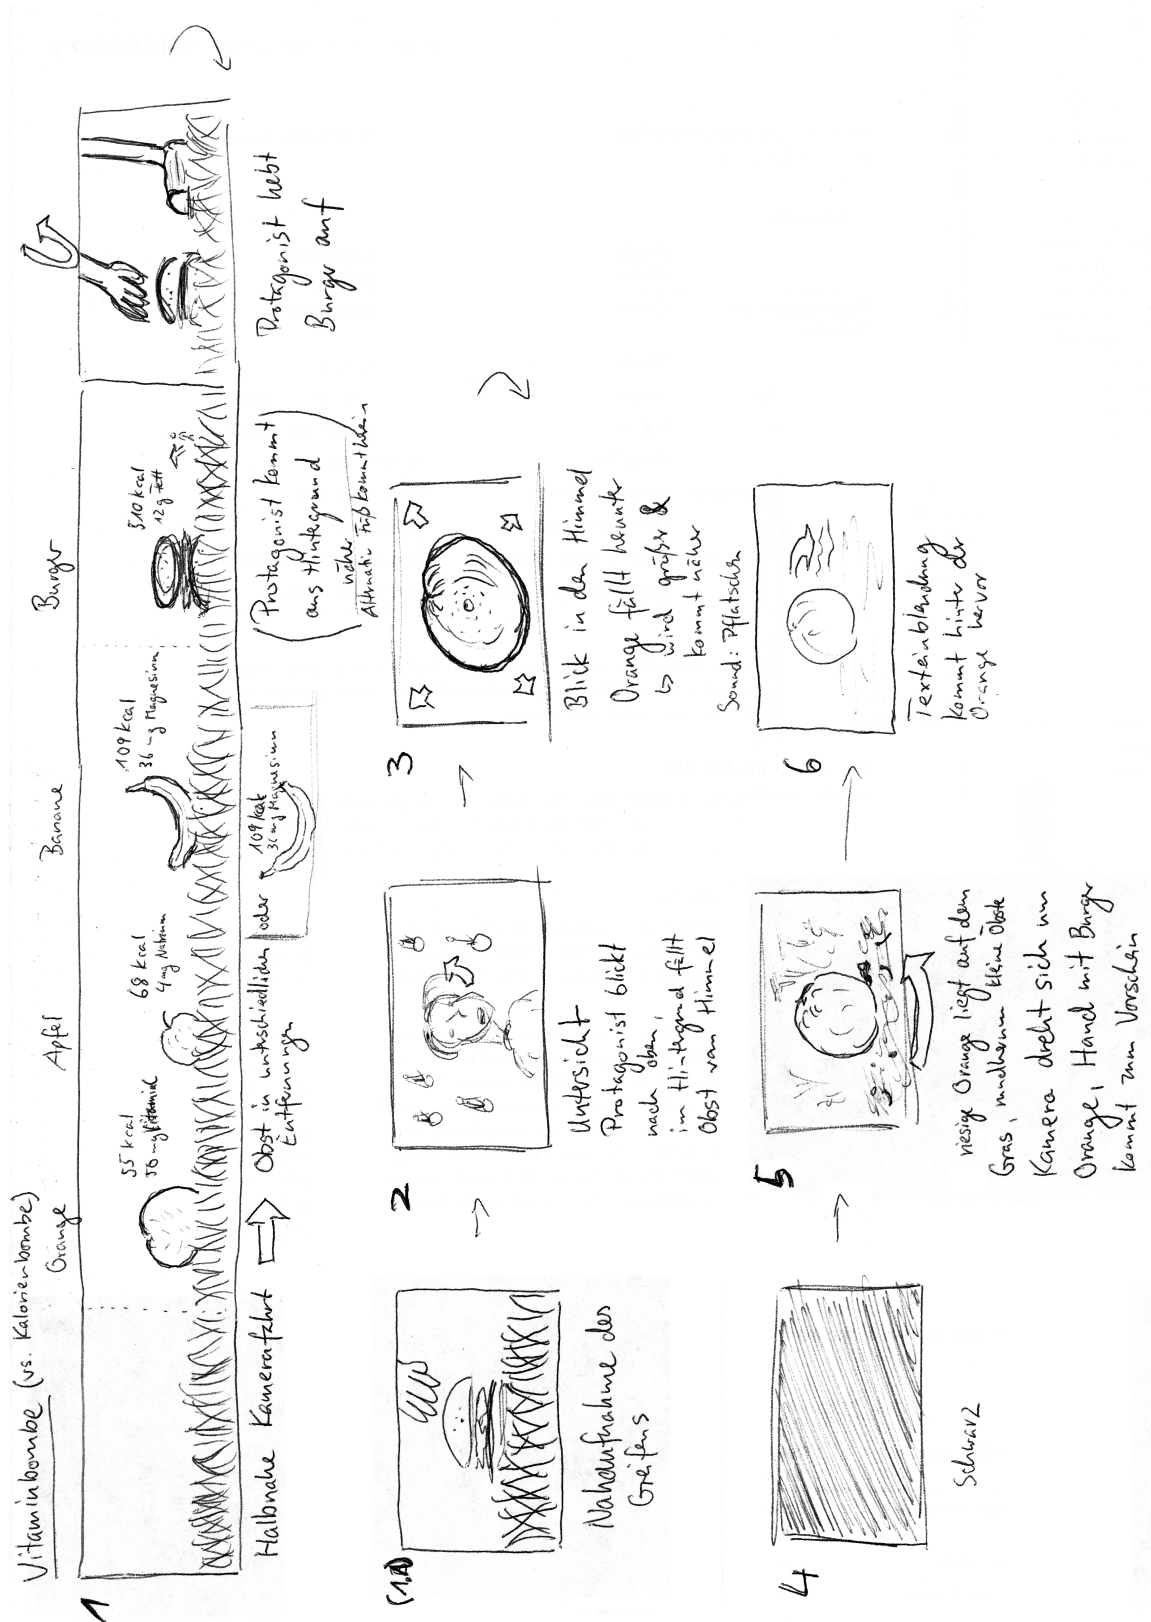 Vitaminbombe (vs. Kalorienbombe)
Orange
Apfel
Banane
Burger
1
55 kcal
50 mg Vitamin C
68 kcal
4 mg Natrium
109 kcal
36 mg Magnesium
510 kcal
12 g Fett
Halbnahe Kamerafahrt
Obst in unterschiedlichen
Entfernungen
oder
109 kcal
36 mg Magnesium
(Protagonist kommt
aus Hintergrund
näher)
Alternativ: Fuß kommt rein
Protagonist hebt
Burger auf
Nahaufnahme des
Greifens
2
Untersicht
Protagonist blickt
nach oben,
im Hintergrund fällt
Obst vom Himmel
3
Blick in den Himmel
Orange fällt herunter
↳ wird größer &
kommt näher
Sound: Pflatschen
4
Schwarz
5
riesige Orange liegt auf dem
Gras, rundherum kleine Obste
Kamera dreht sich um
Orange, Hand mit Burger
kommt zum Vorschein
6
Texteinblendung
kommt hinter der
Orange hervor